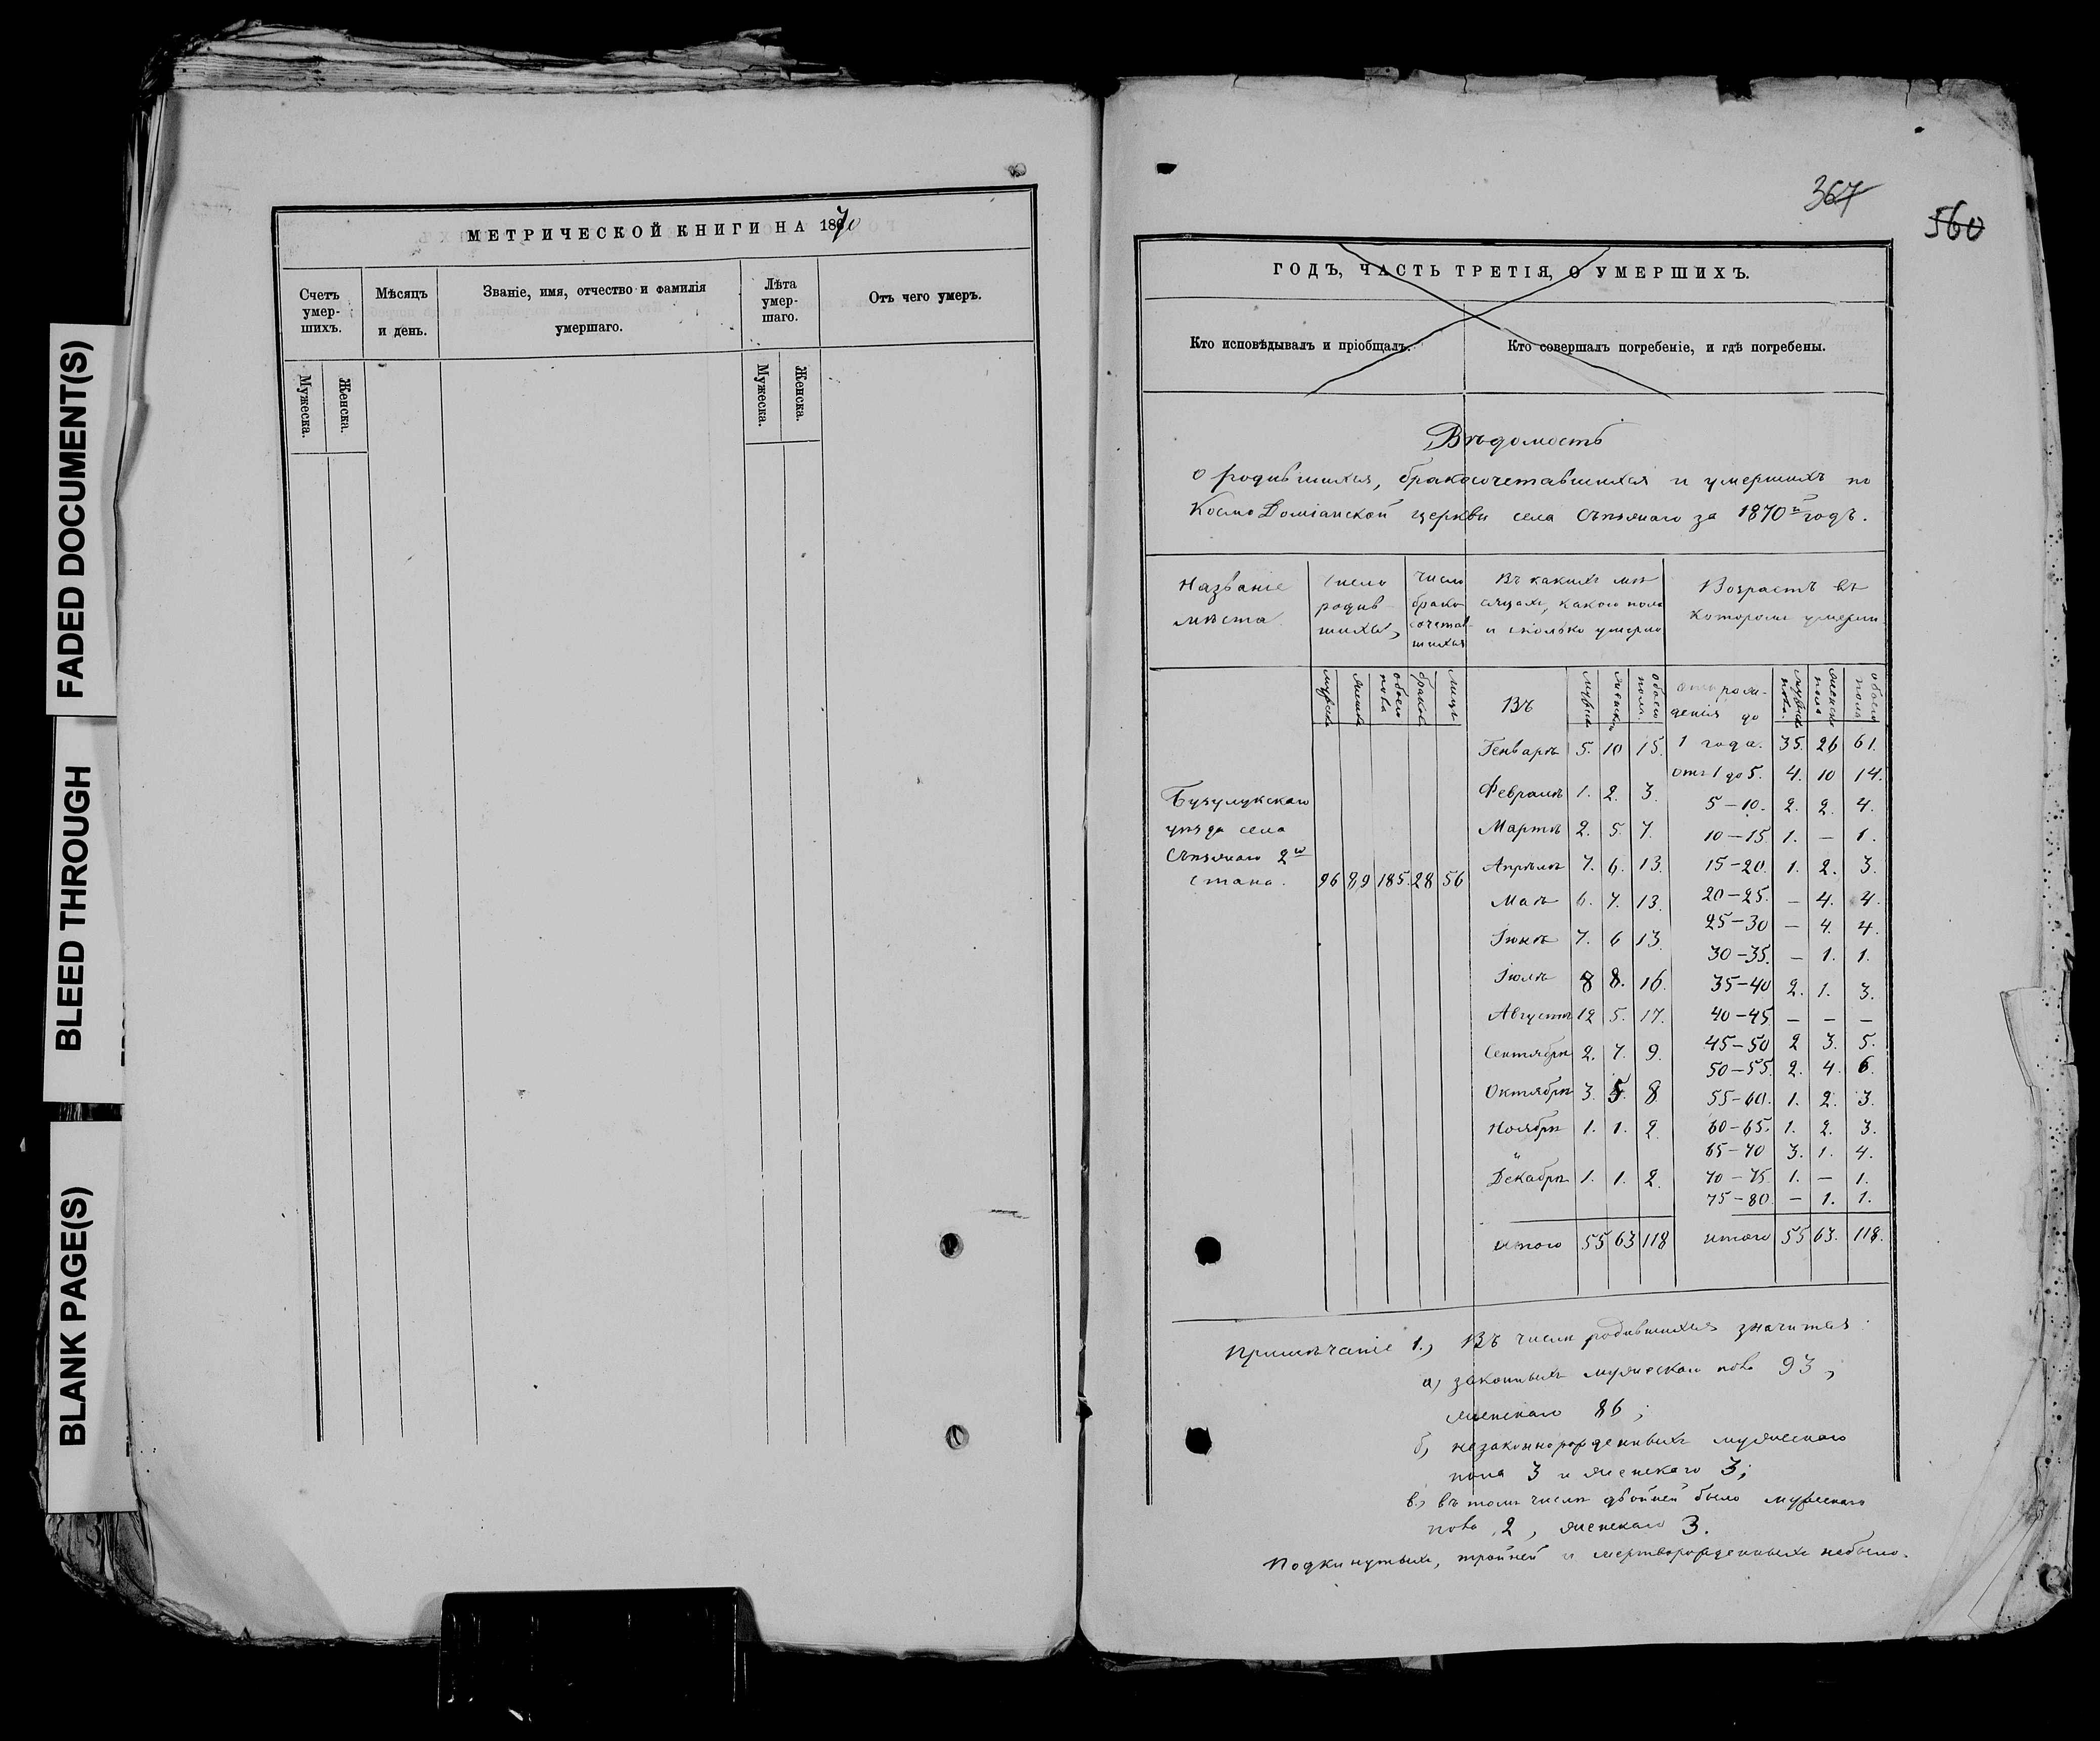 FADED DOCUMENT(S)
BLEED THROUGH
BLANK PAGE(S)
МЕТРИЧЕСКОЙ КНИГИ НА 1870
Счетъ умер-шихъ.
Мѣсяцъ и день.
Званіе, имя, отчество и фамилія умершаго.
Лѣта умер-шаго.
Отъ чего умеръ.
Мужеска. Женска. Мужеска. Женска.
367
560
ГОДЪ, ЧАСТЬ ТРЕТІЯ, О УМЕРШИХЪ.
Кто исповѣдывалъ и пріобщалъ. Кто совершалъ погребеніе, и гдѣ погребены.
Вѣдомость
о родившихся, бракосочетавшихся и умершихъ по
Космо Доміанской церкви села за 1870й годъ.
Названіе мѣста
Число родив-шихся,
Число брако-сочетав-шихся
Въ какихъ мѣ-сяцахъ, какого пола и сколько умерло
Возрастъ въ которомъ умерли
мужска женска обоего пола браковъ лицъ
Въ мужска женска обоего пола.
отъ рож-денія до мужска пола. женска пола обоего пола
Бузулукскаго
уѣзда села
2го
стана. 96 89 185. 28 56
Генварѣ 5. 10 15.
Февралѣ 1. 2. 3.
Мартѣ 2. 5. 7.
Апрѣлѣ 7. 6. 13.
Маѣ 6. 7. 13.
Іюнѣ 7. 6 13.
Іюлѣ 8 8. 16.
Августѣ 12 5. 17.
Сентябрѣ 2. 7. 9.
Октябрѣ 3. 5. 8
Ноябрѣ 1. 1. 2.
и
Декабрѣ 1. 1. 2.
итого 55 63 118
1 года. 35. 26 61.
отъ 1 до 5. 4. 10 14.
5–10. 2. 2. 4.
10–15 1. – 1.
15–20. 1. 2. 3.
20–25. – 4. 4.
25–30 – 4. 4.
30–35. – 1. 1.
35–40 2. 1. 3.
40–45 – – –
45–50 2 3. 5.
50–55. 2. 4. 6.
55–60. 1. 2. 3.
60–65. 1. 2. 3.
65–70 3. 1. 4.
70–75 1. – 1.
75–80 – 1. 1.
итого 55 63. 118.
Примѣчаніе 1.) Въ числѣ родившихся значится:
а) законныхъ мужескаго пола 93,
женскаго 86;
б) незаконнорожденныхъ мужескаго
пола 3 и женскаго 3;
в.) въ томъ числѣ двойней было мужескаго
пола 2, женскаго 3.
Подкинутыхъ, тройней и мертворожденныхъ небыло.